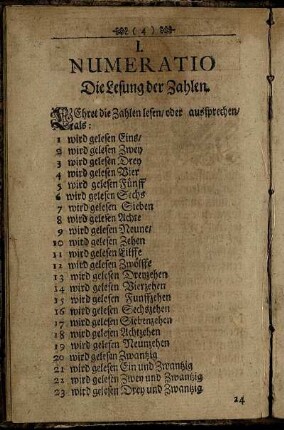 ( 4 )
I.
NUMERATIO
Die Lesung der Zahlen.
LEhret die Zahlen lesen/ oder aussprechen/
als:
1 wird gelesen Eins/
2 wird gelesen Zwey
3 wird gelesen Drey
4 wird gelesen Vier
5 wird gelesen Fünff
6 wird gelesen Sechs
7 wird gelesen Sieben
8 wird gelesen Achte
9 wird gelesen Neune
10 wird gelesen Zehen
11 wird gelesen Eilffe
12 wird gelesen Zwölffe
13 wird gelesen Dreyzehen
14 wird gelesen Vierzehen
15 wird gelesen Funffzehen
16 wird gelesen Sechszehen
17 wird gelesen Siebenzehen
18 wird gelesen Achtzehen
19 wird gelesen Neunzehen
20 wird gelesen Zwantzig
21 wird gelesen Ein und Zwantzig
22 wird gelesen Zwey und Zwantzig
23 wird gelesen Drey und Zwantzig
24